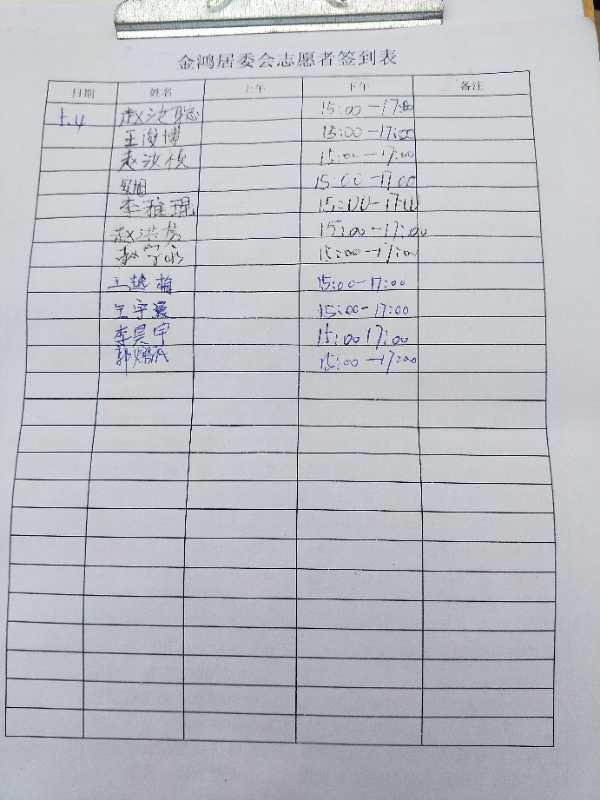 金鸿居委会志愿者签到表
日期 姓名 上午 下午 备注
15:00-17:00
王俊博 15:00-17:00
赵汝 15:00-17:00
15:00-17:00
李雅琨 15:00-17:00
赵洪 15:00-17:00
赵学永 15:00-17:00
王越梅 15:00-17:00
王宇 15:00-17:00
李昊宇 15:00 17:00
郭 15:00-17:00